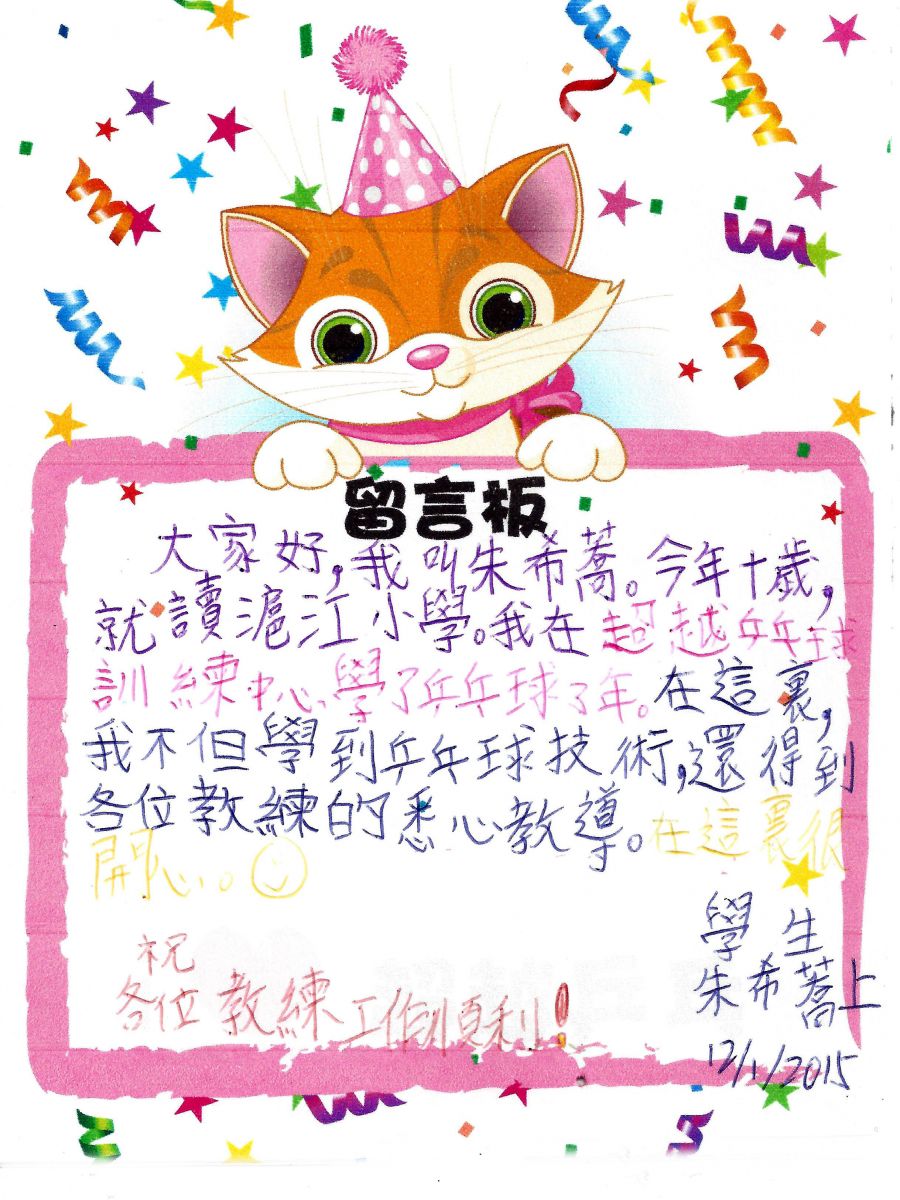 留言板
大家好,我叫朱希蕎。今年十歲,
就讀滬江小學。我在超越乒乓球
訓練中心學了乒乓球了年。在這裏,
我不但學到乒乓球技術,還得到
各位教練的悉心教導。在這裏很
開心。
祝
各位教練工作順利!
學生
朱希蕎上
12/1/2015